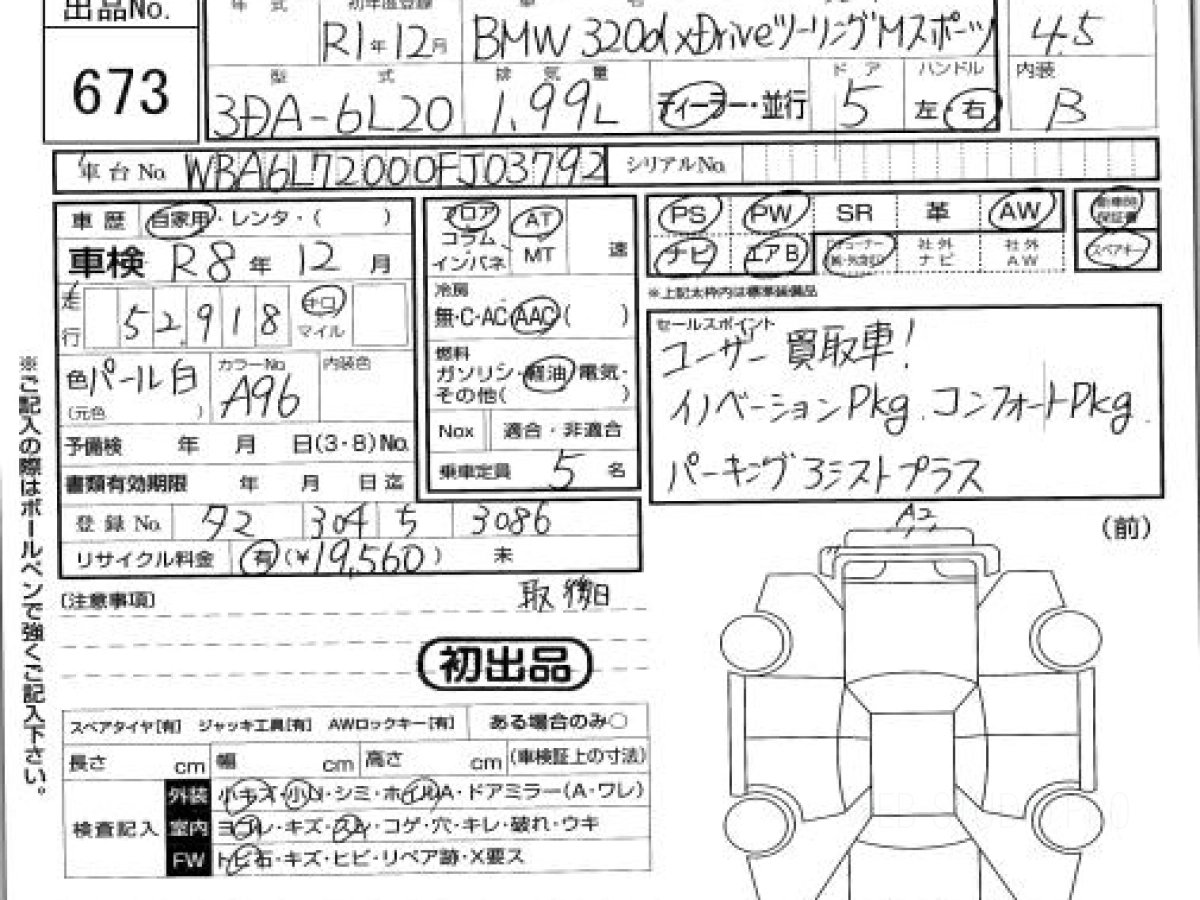 出品No.
年 式 初年度登録
673
R1年12月 BMW 320d xDriveツーリングMスポーツ 4.5
型 式 排 気 量 ドア ハンドル 内装
3DA-6L20 1.99L ディーラー・並行 5 左・右 B
車台No. WBA6L72000FJ03792 シリアルNo.
車歴 自家用・レンタ・( )
フロア コラム インパネ AT MT 速
PS PW SR 革 AW 新車時保証書
ナビ エアB 社外ナビ 社外AW スペアキー
※上記太枠内は標準装備品
車検 R8年 12月
走行 52,918 キロ マイル
冷房
無・C・AC・AAC( )
燃料
ガソリン・軽油・電気・
その他( )
セールスポイント
ユーザー買取車!
イノベーションPkg. コンフォートPkg.
パーキングアシストプラス
色 パール白 カラーNo. A96 内装色
(元色 )
予備検 年 月 日(3・8)No.
Nox 適合・非適合
書類有効期限 年 月 日迄
乗車定員 5 名
登録No. 304 5 3086
リサイクル料金 有(¥19,560) 未
A2
(前)
[注意事項]
取 後日
初出品
スペアタイヤ[有] ジャッキ工具[有] AWロックキー[有] ある場合のみ○
長さ cm 幅 cm 高さ cm (車検証上の寸法)
検査記入
外装 小キズ・小凹・シミ・ホイルA・ドアミラー(A・ワレ)
室内 ヨゴレ・キズ・スレ・コゲ・穴・キレ・破れ・ウキ
FW トビ石・キズ・ヒビ・リペア跡・X要ス
※ご記入の際はボールペンで強くご記入下さい。